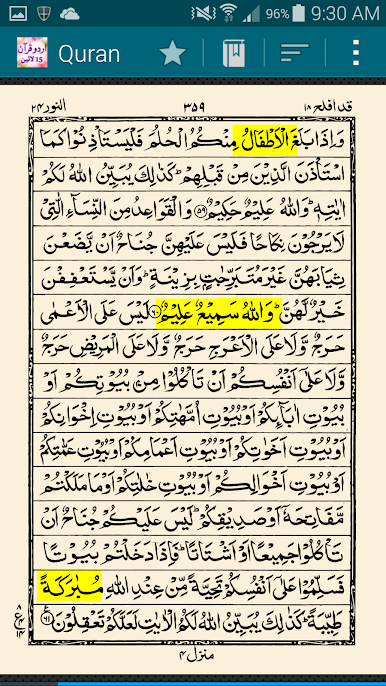 96% 9:30 AM
اردو قرآن
15 لائین
Quran
قد افلح ١٨ ٣٥٩ النور ٢٤
وَاِذَا بَلَغَ الْاَطْفَالُ مِنْكُمُ الْحُلُمَ فَلْيَسْتَاْذِنُوْا كَمَا
اسْتَاْذَنَ الَّذِيْنَ مِنْ قَبْلِهِمْ ؕ كَذٰلِكَ يُبَيِّنُ اللّٰهُ لَكُمْ
اٰيٰتِهٖ ؕ وَاللّٰهُ عَلِيْمٌ حَكِيْمٌ ﴿٥٩﴾ وَالْقَوَاعِدُ مِنَ النِّسَآءِ الّٰتِيْ
لَا يَرْجُوْنَ نِكَاحًا فَلَيْسَ عَلَيْهِنَّ جُنَاحٌ اَنْ يَّضَعْنَ
ثِيَابَهُنَّ غَيْرَ مُتَبَرِّجٰتٍۭ بِزِيْنَةٍ ؕ وَاَنْ يَّسْتَعْفِفْنَ
خَيْرٌ لَّهُنَّ ؕ وَاللّٰهُ سَمِيْعٌ عَلِيْمٌ ﴿٦٠﴾ لَيْسَ عَلَى الْاَعْمٰى
حَرَجٌ وَّلَا عَلَى الْاَعْرَجِ حَرَجٌ وَّلَا عَلَى الْمَرِيْضِ حَرَجٌ
وَّلَا عَلٰٓى اَنْفُسِكُمْ اَنْ تَاْكُلُوْا مِنْۢ بُيُوْتِكُمْ اَوْ
بُيُوْتِ اٰبَآىِٕكُمْ اَوْ بُيُوْتِ اُمَّهٰتِكُمْ اَوْ بُيُوْتِ اِخْوَانِكُمْ
اَوْ بُيُوْتِ اَخَوٰتِكُمْ اَوْ بُيُوْتِ اَعْمَامِكُمْ اَوْ بُيُوْتِ عَمّٰتِكُمْ
اَوْ بُيُوْتِ اَخْوَالِكُمْ اَوْ بُيُوْتِ خٰلٰتِكُمْ اَوْ مَا مَلَكْتُمْ
مَّفَاتِحَهٗۤ اَوْ صَدِيْقِكُمْ ؕ لَيْسَ عَلَيْكُمْ جُنَاحٌ اَنْ
تَاْكُلُوْا جَمِيْعًا اَوْ اَشْتَاتًا ؕ فَاِذَا دَخَلْتُمْ بُيُوْتًا
فَسَلِّمُوْا عَلٰٓى اَنْفُسِكُمْ تَحِيَّةً مِّنْ عِنْدِ اللّٰهِ مُبٰرَكَةً
طَيِّبَةً ؕ كَذٰلِكَ يُبَيِّنُ اللّٰهُ لَكُمُ الْاٰيٰتِ لَعَلَّكُمْ تَعْقِلُوْنَ ﴿٦١﴾
منزل ٤